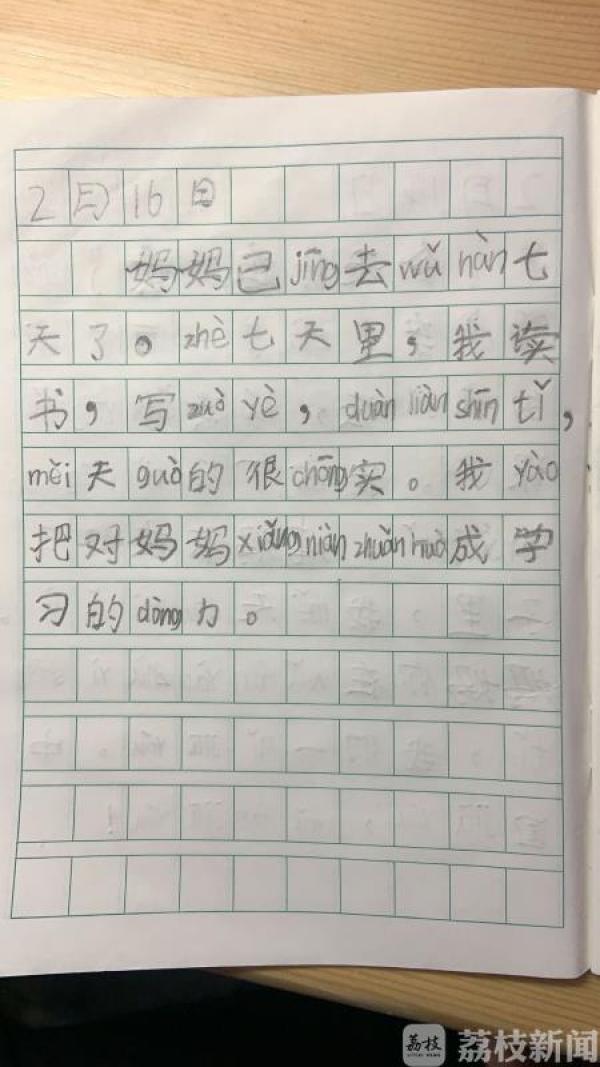 2月16日
妈妈已jīng去wǔ hàn七
天了。zhè七天里，我读
书，写zuò yè，duàn liàn shēn tǐ，
měi天guò的很chōng实。我yào
把对妈妈xiǎng niàn zhuǎn huà成学
习的dòng力。
荔枝
荔枝新闻